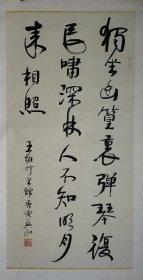 獨坐幽篁裏彈琴復
長嘯深林人不知明月
來相照
王維竹里館